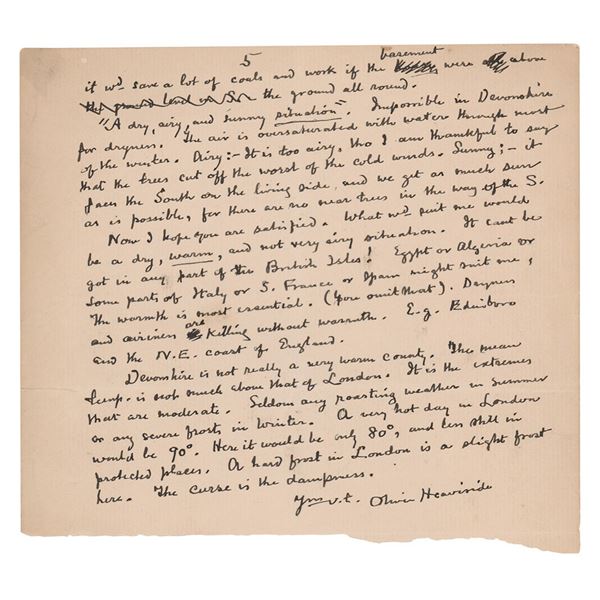 5
it wd. save a lot of coals and work if the basement were above
the ground level on S. the ground all round.
"A dry, airy, and sunny situation". Impossible in Devonshire
for dryness. The air is oversaturated with water through most
of the winter. Airy:- It is too airy, tho I am thankful to say
that the trees cut off the worst of the cold winds. Sunny; - it
faces the South on the living side, and we get as much sun
as is possible, for there are no near trees in the way of the S.
Now I hope you are satisfied. What wd. suit me would
be a dry, warm, and not very airy situation. It cant be
got in any part of the British Isles! Egypt or Algeria or
some parts of Italy or S. France or Spain might suit me,
The warmth is most essential. (You omit that). Dryness
and airiness are killing without warmth. E.g. Edinboro
and the N.E. coast of England.
Devonshire is not really a very warm county. The mean
temp. is not much above that of London. It is the extremes
that are moderate. Seldom any roasting weather in summer
or any severe frosts in winter. A very hot day in London
would be 90°. Here it would be only 80°, and less still in
protected places. A hard frost in London is a slight frost
here. The curse is the dampness.
Yrs v.t. Oliver Heaviside